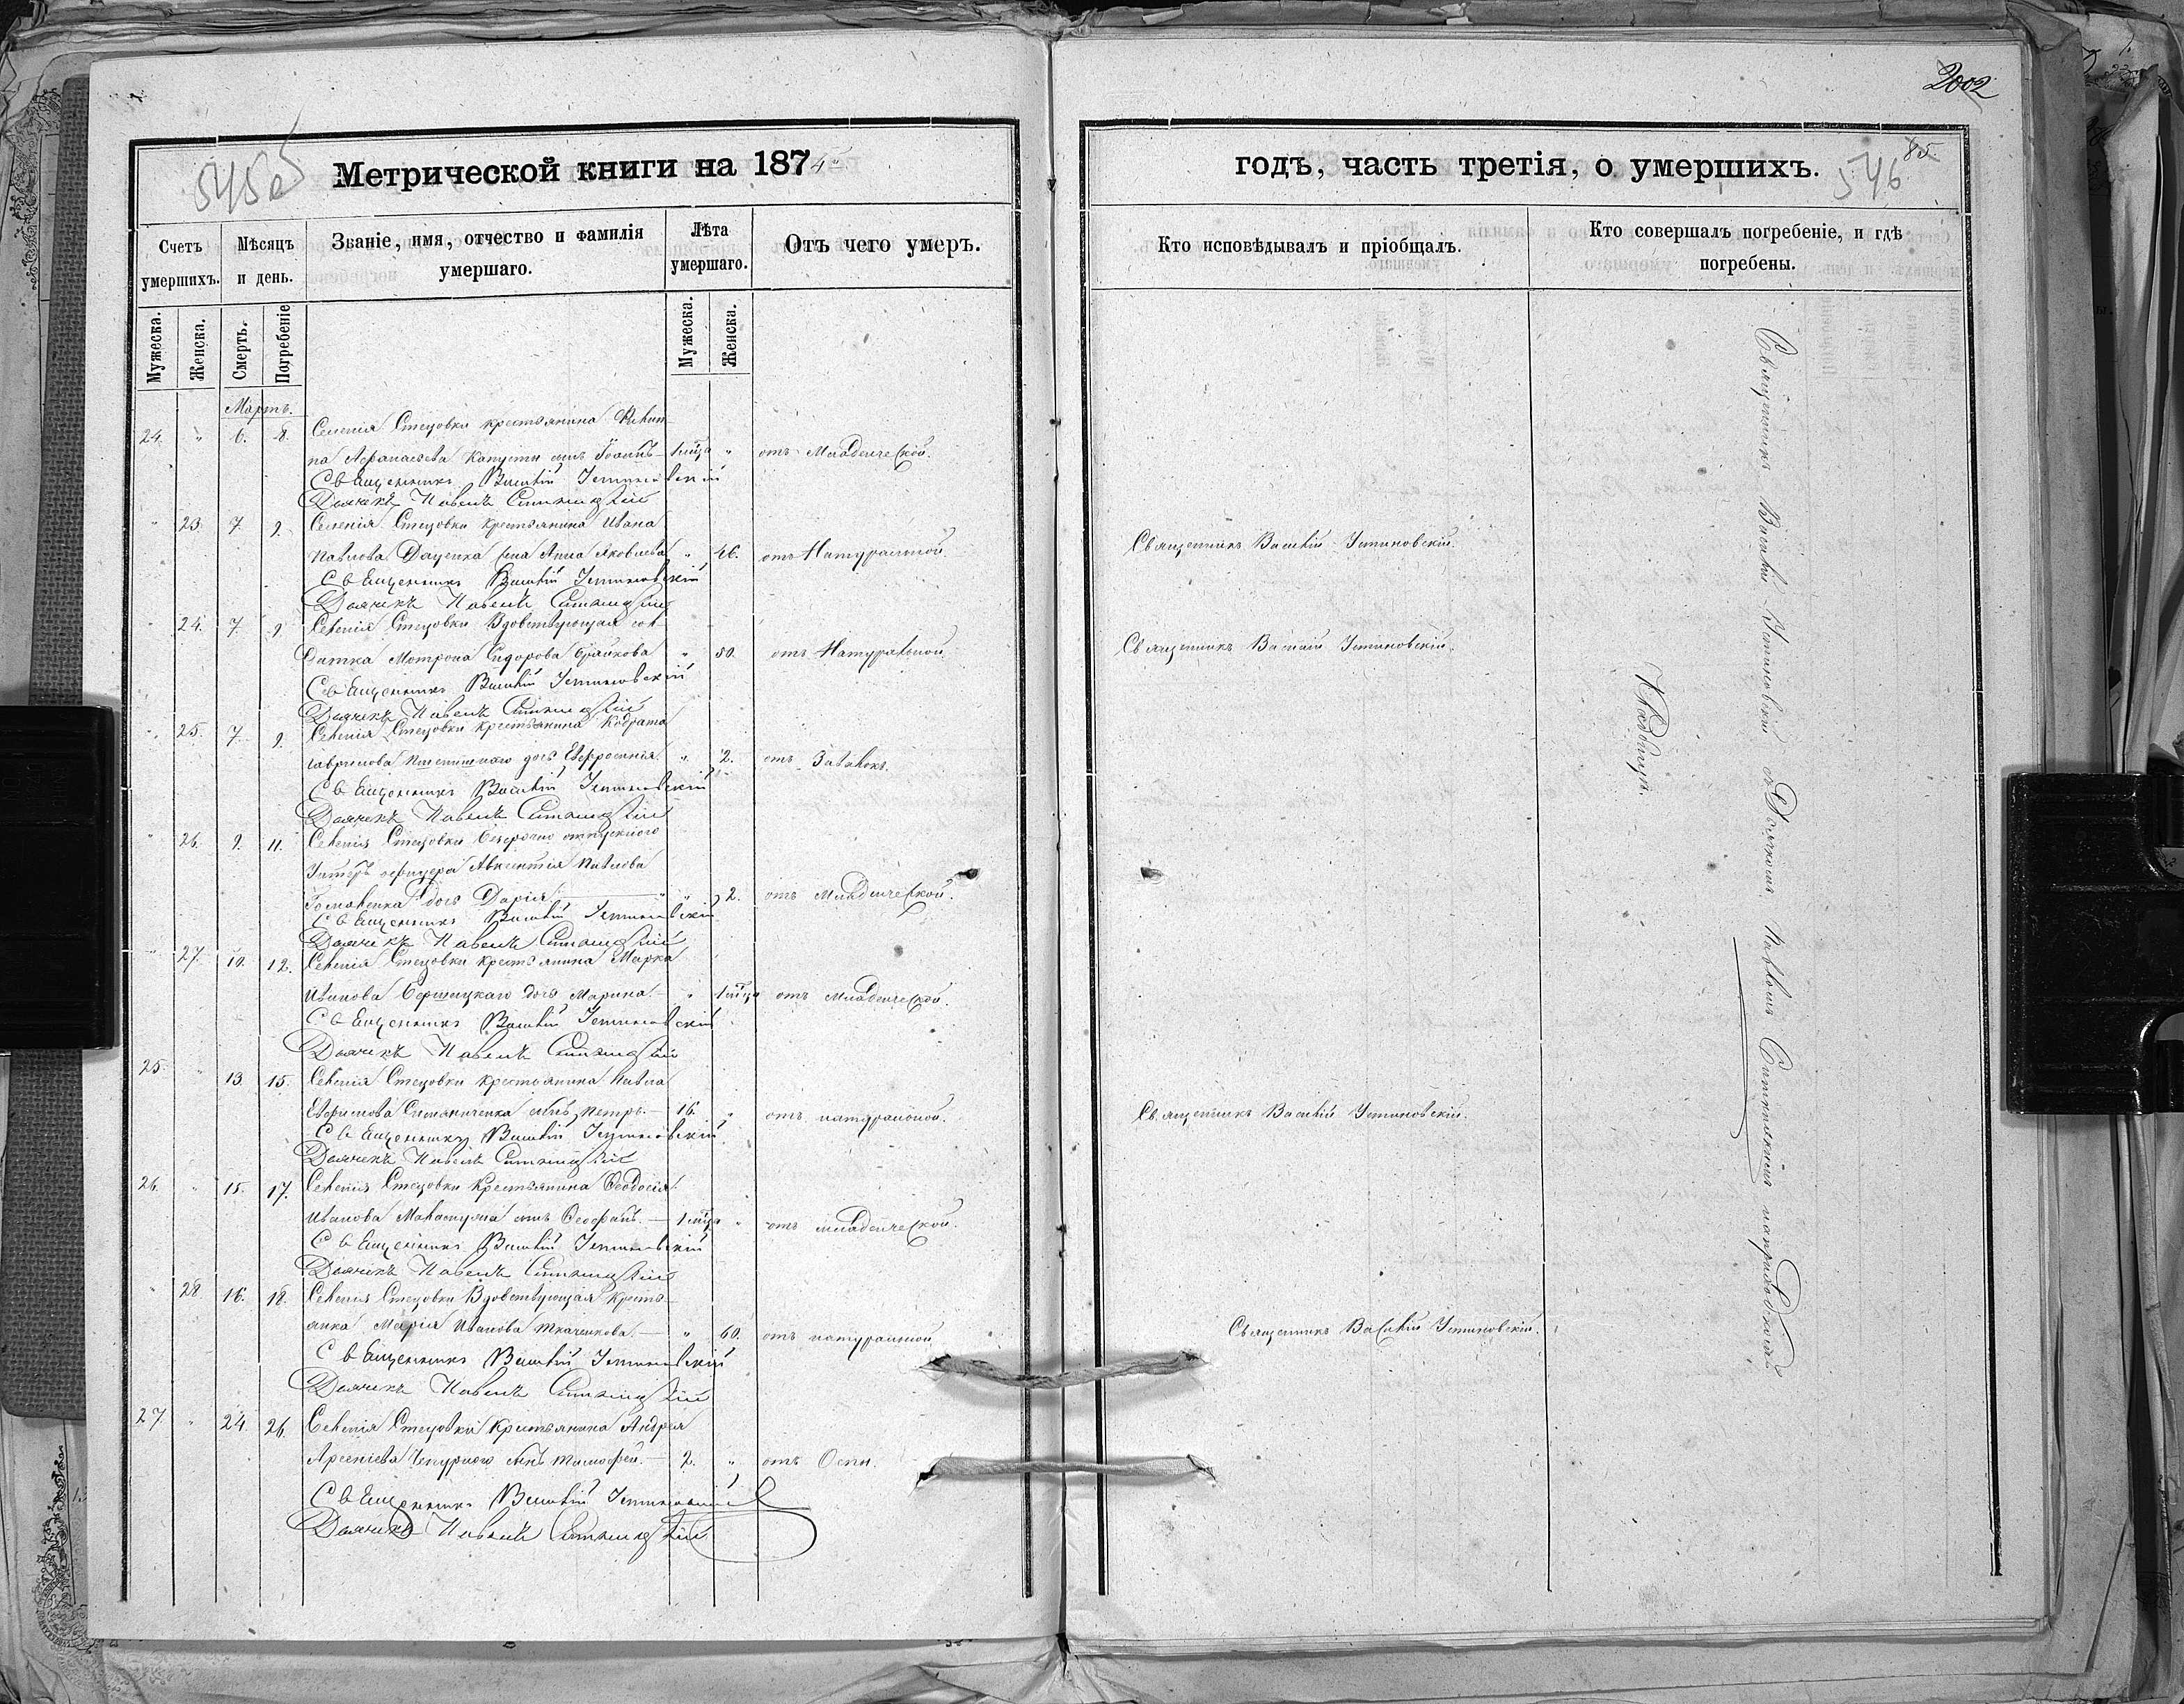 2002
545
Метрической книги на 1874
годъ, часть третія, о умершихъ.
546
85
Счетъ умершихъ.
Мѣсяцъ и день.
Званіе, имя, отчество и фамилія умершаго.
Лѣта умершаго.
Отъ чего умеръ.
Кто исповѣдывалъ и пріобщалъ.
Кто совершалъ погребеніе, и гдѣ погребены.
Мужеска.
Женска.
Смерть.
Погребеніе
Мужеска.
Женска.
Мартъ.
24. " 6. 8. Селенія Стецовки крестьянина Филип
па Афанасьева Капусты сынъ Іоаннъ 1 мца " отъ Младенческой.
Священникъ Василій Устиновскій
Дьячекъ Павелъ
" 23. 7. 9. Селенія Стецовки крестьянина Ивана
Павлова Даценка жена Анна Яковлева " 46. отъ Натуральной Священникъ Василій Устиновскій.
Священникъ Василій Устиновскій
Дьячекъ Павелъ
" 24. 7. 9. Селенія Стецовки Вдовствующая сол
датка Мотрона Сидорова " 50. отъ Натуральной Священникъ Василій Устиновскій.
Священникъ Василій Устиновскій
Дьячекъ Павелъ
" 25. 7. 9. Селенія Стецовки крестьянина Кодрата
Гаврилова дочь Евфросинія. " 2. отъ Завалокъ.
Священникъ Василій Устиновскій
Дьячекъ Павелъ
" 26. 9. 11. Селенія Стецовки безсрочно отпускного
Унтеръ офицера Авксентія Павлова
дочь Дарія " 2. отъ Младенческой.
Священникъ Василій Устиновскій
Дьячекъ Павелъ
" 27. 10. 12. Селенія Стецовки крестьянина Марка
Иванова дочь Марина. " 1 мца отъ Младенческой.
Священникъ Василій Устиновскій
Дьячекъ Павелъ
25. " 13. 15. Селенія Стецовки крестьянина Павла
Евфимова сынъ Петръ. 16. " отъ натуральной. Священникъ Василій Устиновскій.
Священникъ Василій Устиновскій
Дьячекъ Павелъ
26. " 15. 17. Селенія Стецовки Крестьянина Феодосія
Иванова сынъ Феофанъ. 1 мца " отъ младенческой.
Священникъ Василій Устиновскій
Дьячекъ Павелъ
" 28 16. 18. Селенія Стецовки Вдовствующая кресть
янка Марія Иванова Ткаченкова. " 60. отъ натуральной Священникъ Василій Устиновскій.
Священникъ Василій Устиновскій
Дьячекъ Павелъ
27 " 24. 26. Селенія Стецовки Крестьянина Андрея
Арсеніева Чепурного сынъ Тимофей. 2. " отъ Оспы.
Священникъ Василій Устиновскій
Дьячекъ Павелъ
Священникъ Василій Устиновскій съ Дьячкомъ Павломъ на приходскомъ
Кладбищѣ.